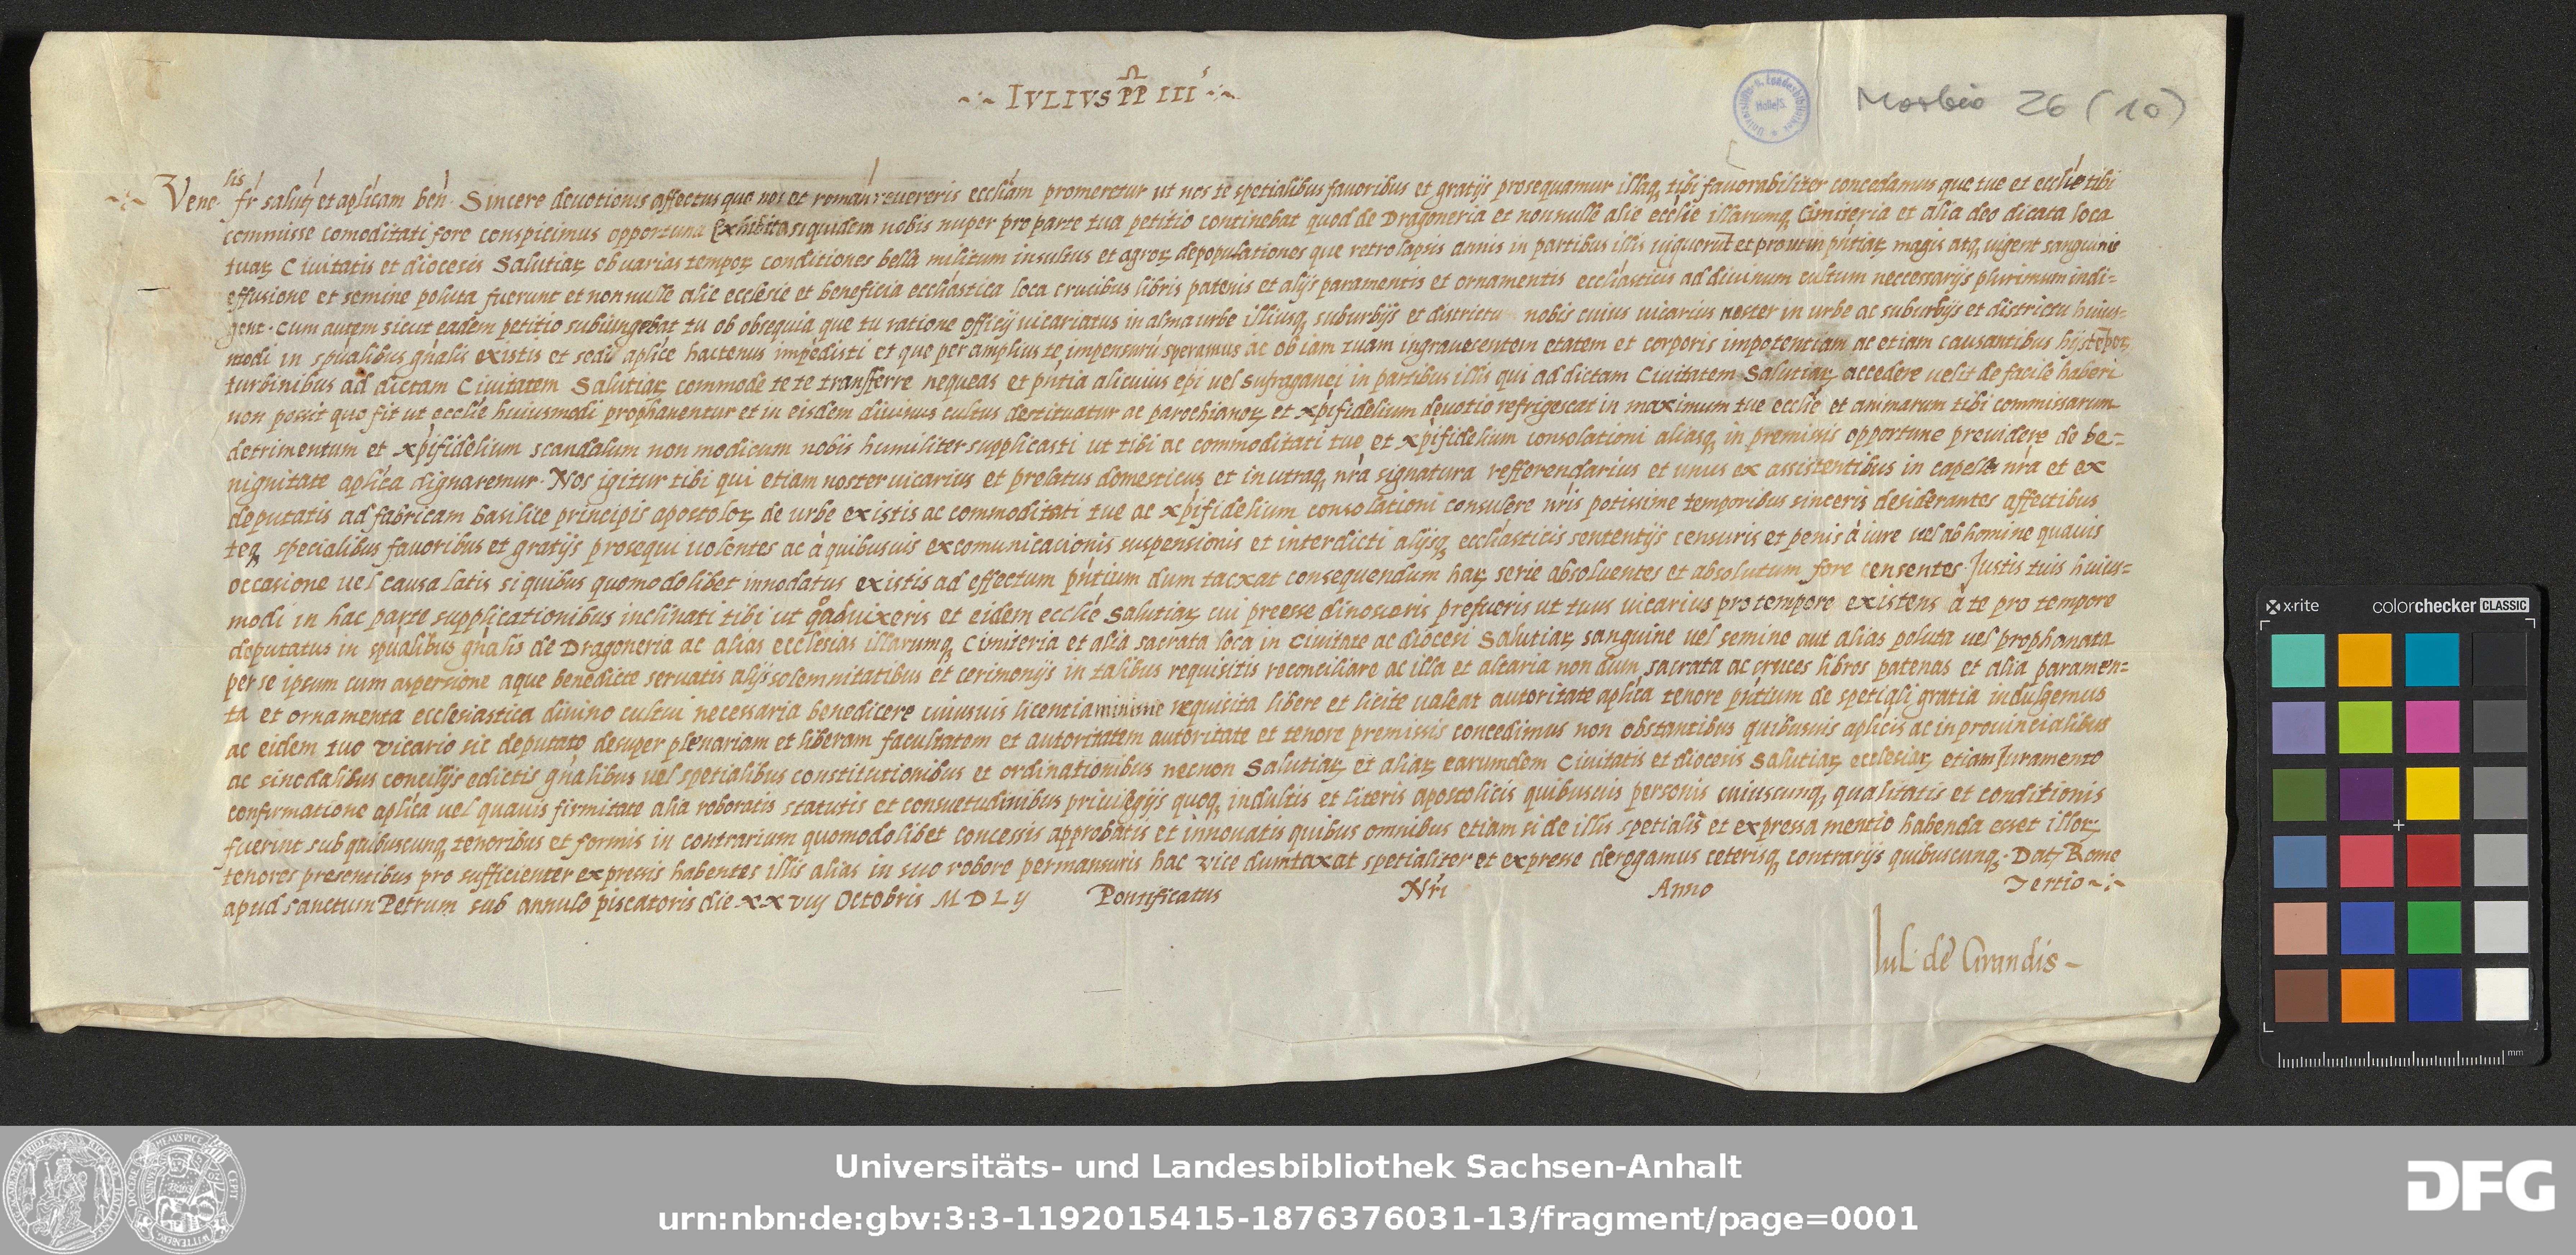 ~·~ IVLIVS PP III ·~·~
Morbio 26 (10)
Venelis fr̃ salut̃ et aplicam ben̄. Sincere devotionis affectus quo nos et romañ revereris eccliam promeretur ut nos te spetialibus favoribus et gratijs prosequamur illaq, tibi favorabiliter concedamus que tue et ecclie tibi
commisse comoditati fore conspicimus opportuna Exhibita siquidem nobis nuper pro parte tua petitio continebat quod de Dragoneria et nonnulle alie ecclie illarumq, Cimiteria et alia deo dicata loca
tuaꝝ Civitatis et diocesis Salutiaꝝ ob varias tempoꝝ conditiones bella militum insultus et agroꝝ depopulationes que retro lapsis annis in partibus illis viguerūt et prout in pñtiaꝝ magis atq, vigent sanguinis
effusione et semine poluta fuerunt et nonnulle alie ecclesie et beneficia eccliastica loca crucibus libris patenis et alijs paramentis et ornamentis eccliasticis ad divinum cultum neccessarijs plurimum indi=
gent. Cum autem sicut eadem petitio subiungebat tu ob obsequia que tu ratione officij vicariatus in alma urbe illiusq, suburbijs et districtu nobis cuius vicarius noster in urbe ac suburbijs et districtu huius=
modi in spualibus gñalis existis et sedi aplice hactenus impedisti et que per amplius te impensurū speramus ac ob iam tuam ingravecentem etatem et corporis impotentiam ac etiam causantibus hijs tēpoꝝ
turbinibus ad dictam Civitatem Salutiaꝝ commode te te transferre nequeas et pñtia alicuius epi vel sufraganei in partibus illis qui ad dictam Civitatem Salutiaꝝ accedere velit de facile haberi
non possit quo fit ut ecclie huiusmodi prophanentur et in eisdem divinus cultus destituatur ac parochianoꝝ et xpifidelium devotio refrigescat in maximum tue ecclie et animarum tibi commissarum
detrimentum et xpifidelium scandalum non modicum nobis humiliter supplicasti ut tibi ac commoditati tue et xpifidelium consolationi aliasq, in premissis opportune providere de be=
nignitate aplica dignaremur. Nos igitur tibi qui etiam noster vicarius et prelatus domesticus et in utraq, nrã signatura refferendarius et unus ex assistentibus in capella nrã et ex
deputatis ad fabricam basilice principis apostoloꝝ de urbe existis ac commoditati tue ac xpifidelium consolationi consulere nris potissime temporibus sinceris desiderantes affectibus
teq, specialibus favoribus et gratijs prosequi volentes ac à quibusvis excomunicacionis suspensionis et interdicti alijsq, eccliasticis sententijs censuris et penis à iure vel ab homine quavis
occasione vel causa latis si quibus quomodolibet innodatus existis ad effectum pñtium dum tacxat consequendum haꝝ serie absolventes et absolutum fore censentes. Justis tuis huius=
modi in hac parte supplicationibus inclinati tibi ut qoadvixeris et eidem ecclie Salutiaꝝ cui preesse dinosceris prefueris ut tuus vicarius pro tempore existens à te pro tempore
deputatus in spualibus gñalis de Dragoneria ac alias ecclesias illarumq, Cimiteria et alia sacrata loca in Civitate ac diocesi Salutiaꝝ sanguine vel semine aut alias poluta vel prophanata
per se ipsum cum aspersione aque benedicte servatis alijs solemnitatibus et cerimonijs in talibus requisitis reconciliare ac illa et altaria non dum sacrata ac cruces libros patenas et alia paramen=
ta et ornamenta ecclesiastica divino cultui necessaria benedicere cuiusvis licentia minime requisita libere et licite valeat autoritate aplica tenore pñtium de spetiali gratia indulgemus
ac eidem tuo vicario sic deputato desuper plenariam et liberam facultatem et autoritatem autoritate et tenore premissis concedimus non obstantibus quibusvis aplicis ac in provincialibus
ac sinodalibus concilijs edictis gñalibus vel spetialibus constitutionibus et ordinationibus necnon Salutiaꝝ et aliaꝝ earumdem Civitatis et diocesis Salutiaꝝ ecclesiaꝝ etiam Juramento
confirmatione aplica vel quavis firmitate alia roboratis statutis et consuetudinibus privilegijs quoq, indultis et literis apostolicis quibusvis personis cuiuscunq, qualitatis et conditionis
fuerint sub quibuscunq, tenoribus et formis in contrarium quomodolibet concessis approbatis et innovatis quibus omnibus etiam si de illis spetialis et expressa mentio habenda esset illoꝝ
tenores presentibus pro sufficienter expressis habentes illis alias in suo robore permansuris hac vice dumtaxat spetialiter et expresse derogamus ceterisq, contrarijs quibuscunq,. Dat̃ Rome
apud sanctum Petrum sub annulo piscatoris die xxvij Octobris M D L ij Pontificatus Nr̃i Anno Tertio ~:~
Jul. de Grandis ~
x·rite colorchecker CLASSIC
mm
Universitäts- und Landesbibliothek Sachsen-Anhalt
urn:nbn:de:gbv:3:3-1192015415-1876376031-13/fragment/page=0001
DFG